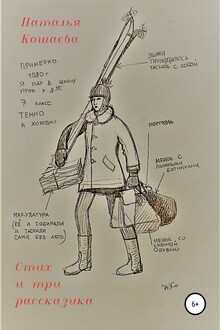 Наталья
Кошаева
ПРИМЕРНО
1980 г
Я ИДУ В ШКОЛУ
УТРОМ К 8 00
7 КЛАСС
ТЕМНО
И ХОЛОДНО
ЛЫЖИ
ПРИХОДИЛОСЬ
ТАСКАТЬ С СОБОЙ
ПОРТФЕЛЬ
МЕШОК С
ЛЫЖНЫМИ
БОТИНКАМИ
МАКУЛАТУРА
(ЕЁ И СОБИРАЛИ
И ТАСКАЛИ
САМИ БЕЗ АВТО)
МЕШОК СО
СМЕННОЙ
ОБУВЬЮ
Стих
и три
рассказика
6+